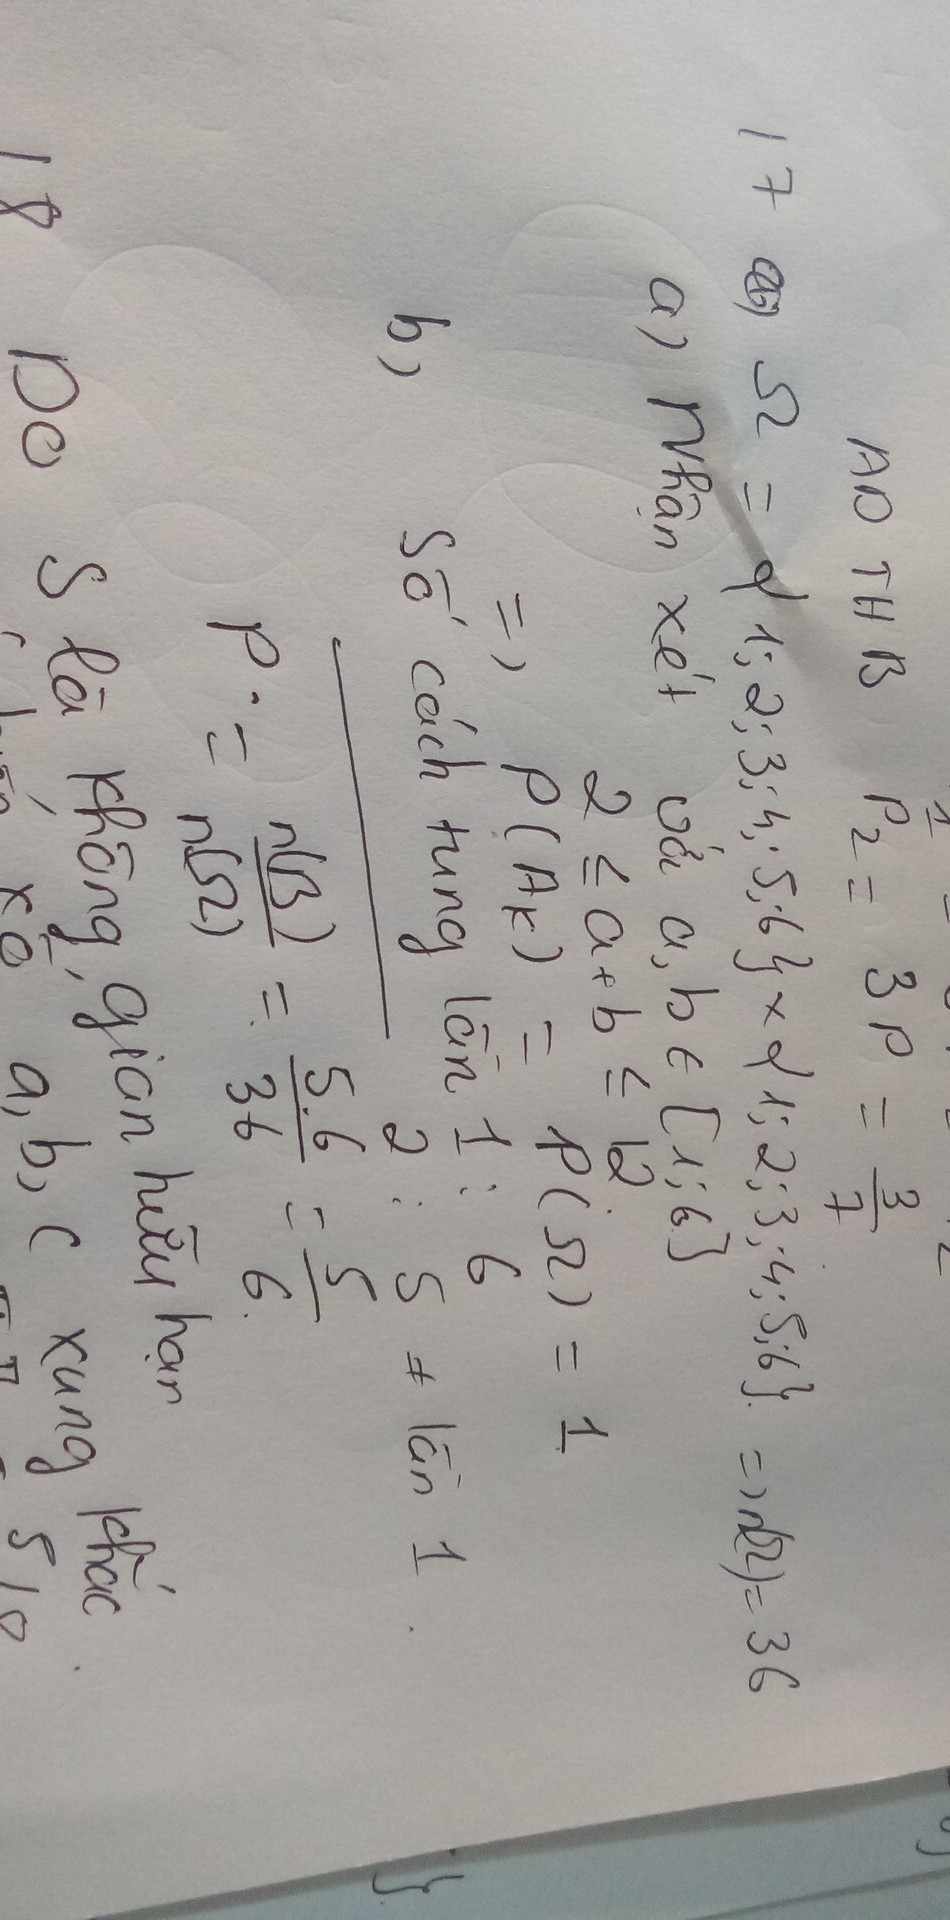 AD THB P₂ = 3P = 3/7
17 Ω = {1; 2; 3; 4; 5; 6} × {1; 2; 3; 4; 5; 6}. => n(Ω) = 36
a) Nhận xét với a, b ∈ [1; 6]
2 ≤ a + b ≤ 12.
=> P(A_K) = P(Ω) = 1
b) Số cách tung lần 1 : 6
2 : 5 ≠ lần 1.
P = n(B)/n(Ω) = 5.6/36 = 5/6.
18 Do S là không gian hữu hạn
xố a, b, c xung khắc.